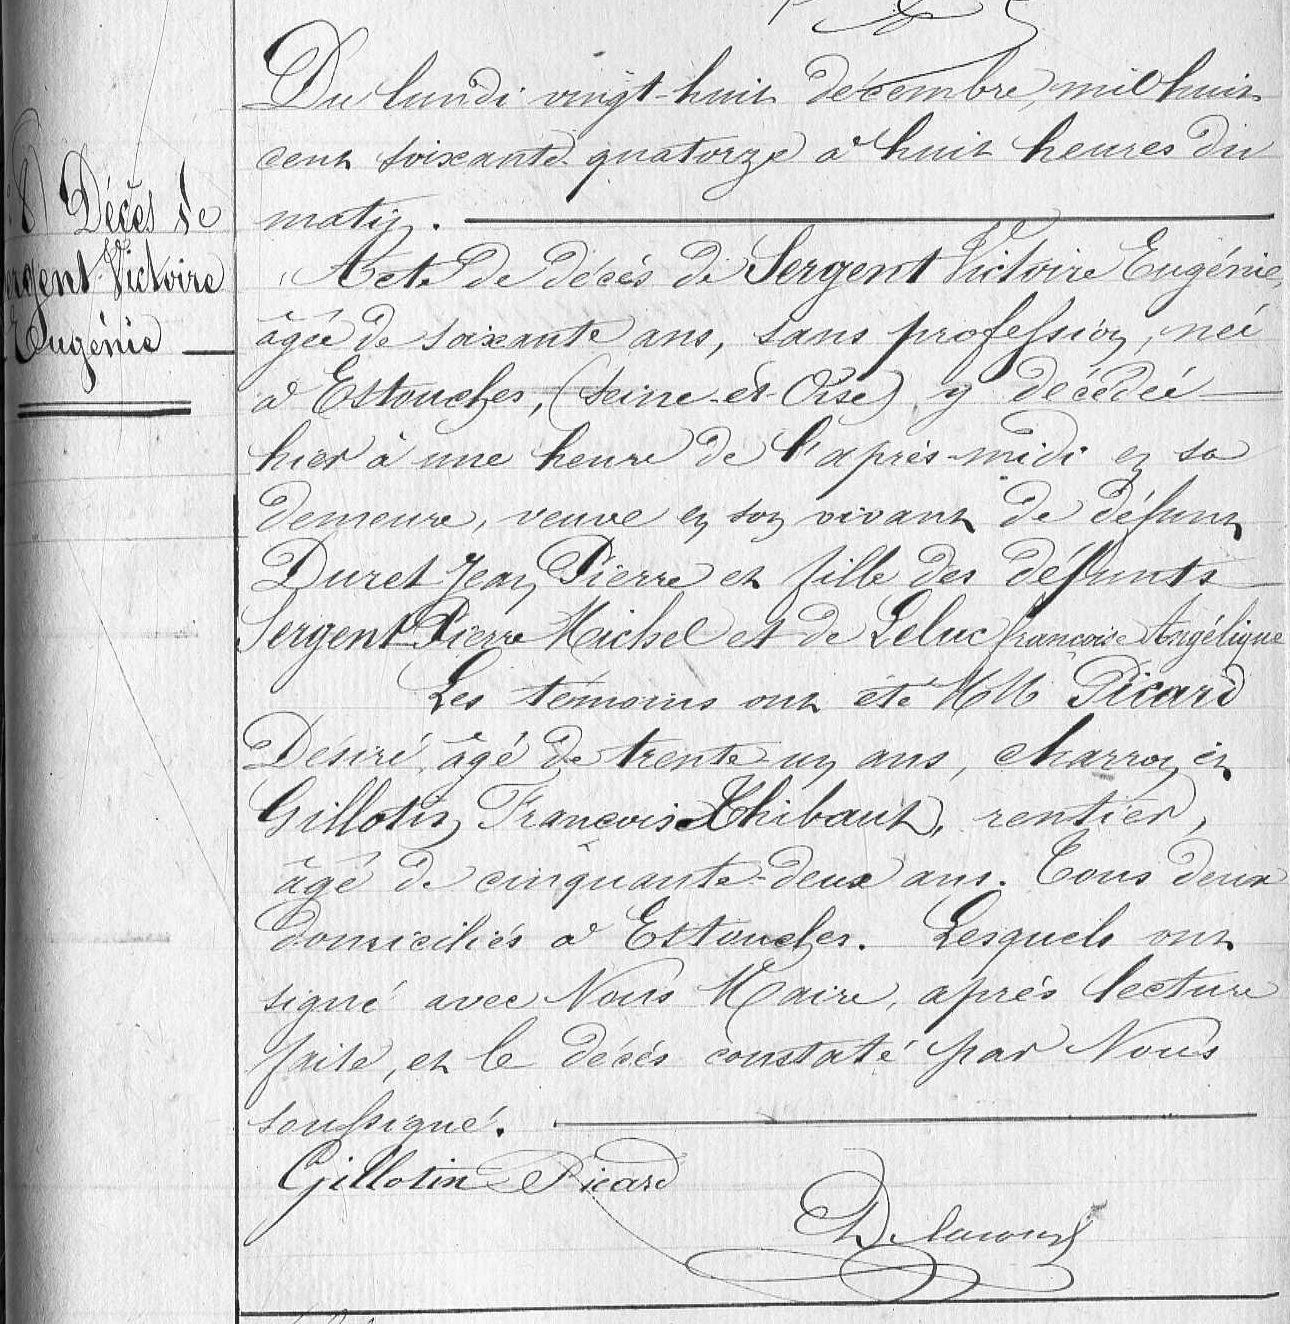 8) Décès de
Sergent Victoire
Eugénie
Du lundi vingt-huit décembre, mil huit
cent soixante-quatorze à huit heures du
matin.
Acte de décès de Sergent Victoire Eugénie,
âgée de soixante ans, sans profession, née
à Estouches, (Seine-et-Oise) y décédée
hier à une heure de l'après-midi en sa
demeure, veuve en son vivant de défunt
Duret Jean Pierre et fille des défunts
Sergent Pierre Michel et de Leluc françoise Angélique
Les témoins ont été MM Picard
Désiré, âgé de trente-un ans, charron et
Gillotin François Thibaut, rentier,
âgé de cinquante-deux ans. Tous deux
domiciliés à Estouches. Lesquels ont
signé avec Nous Maire, après lecture
faite, et le décès constaté par Nous
soussigné.
Gillotin Picard
Delacourt